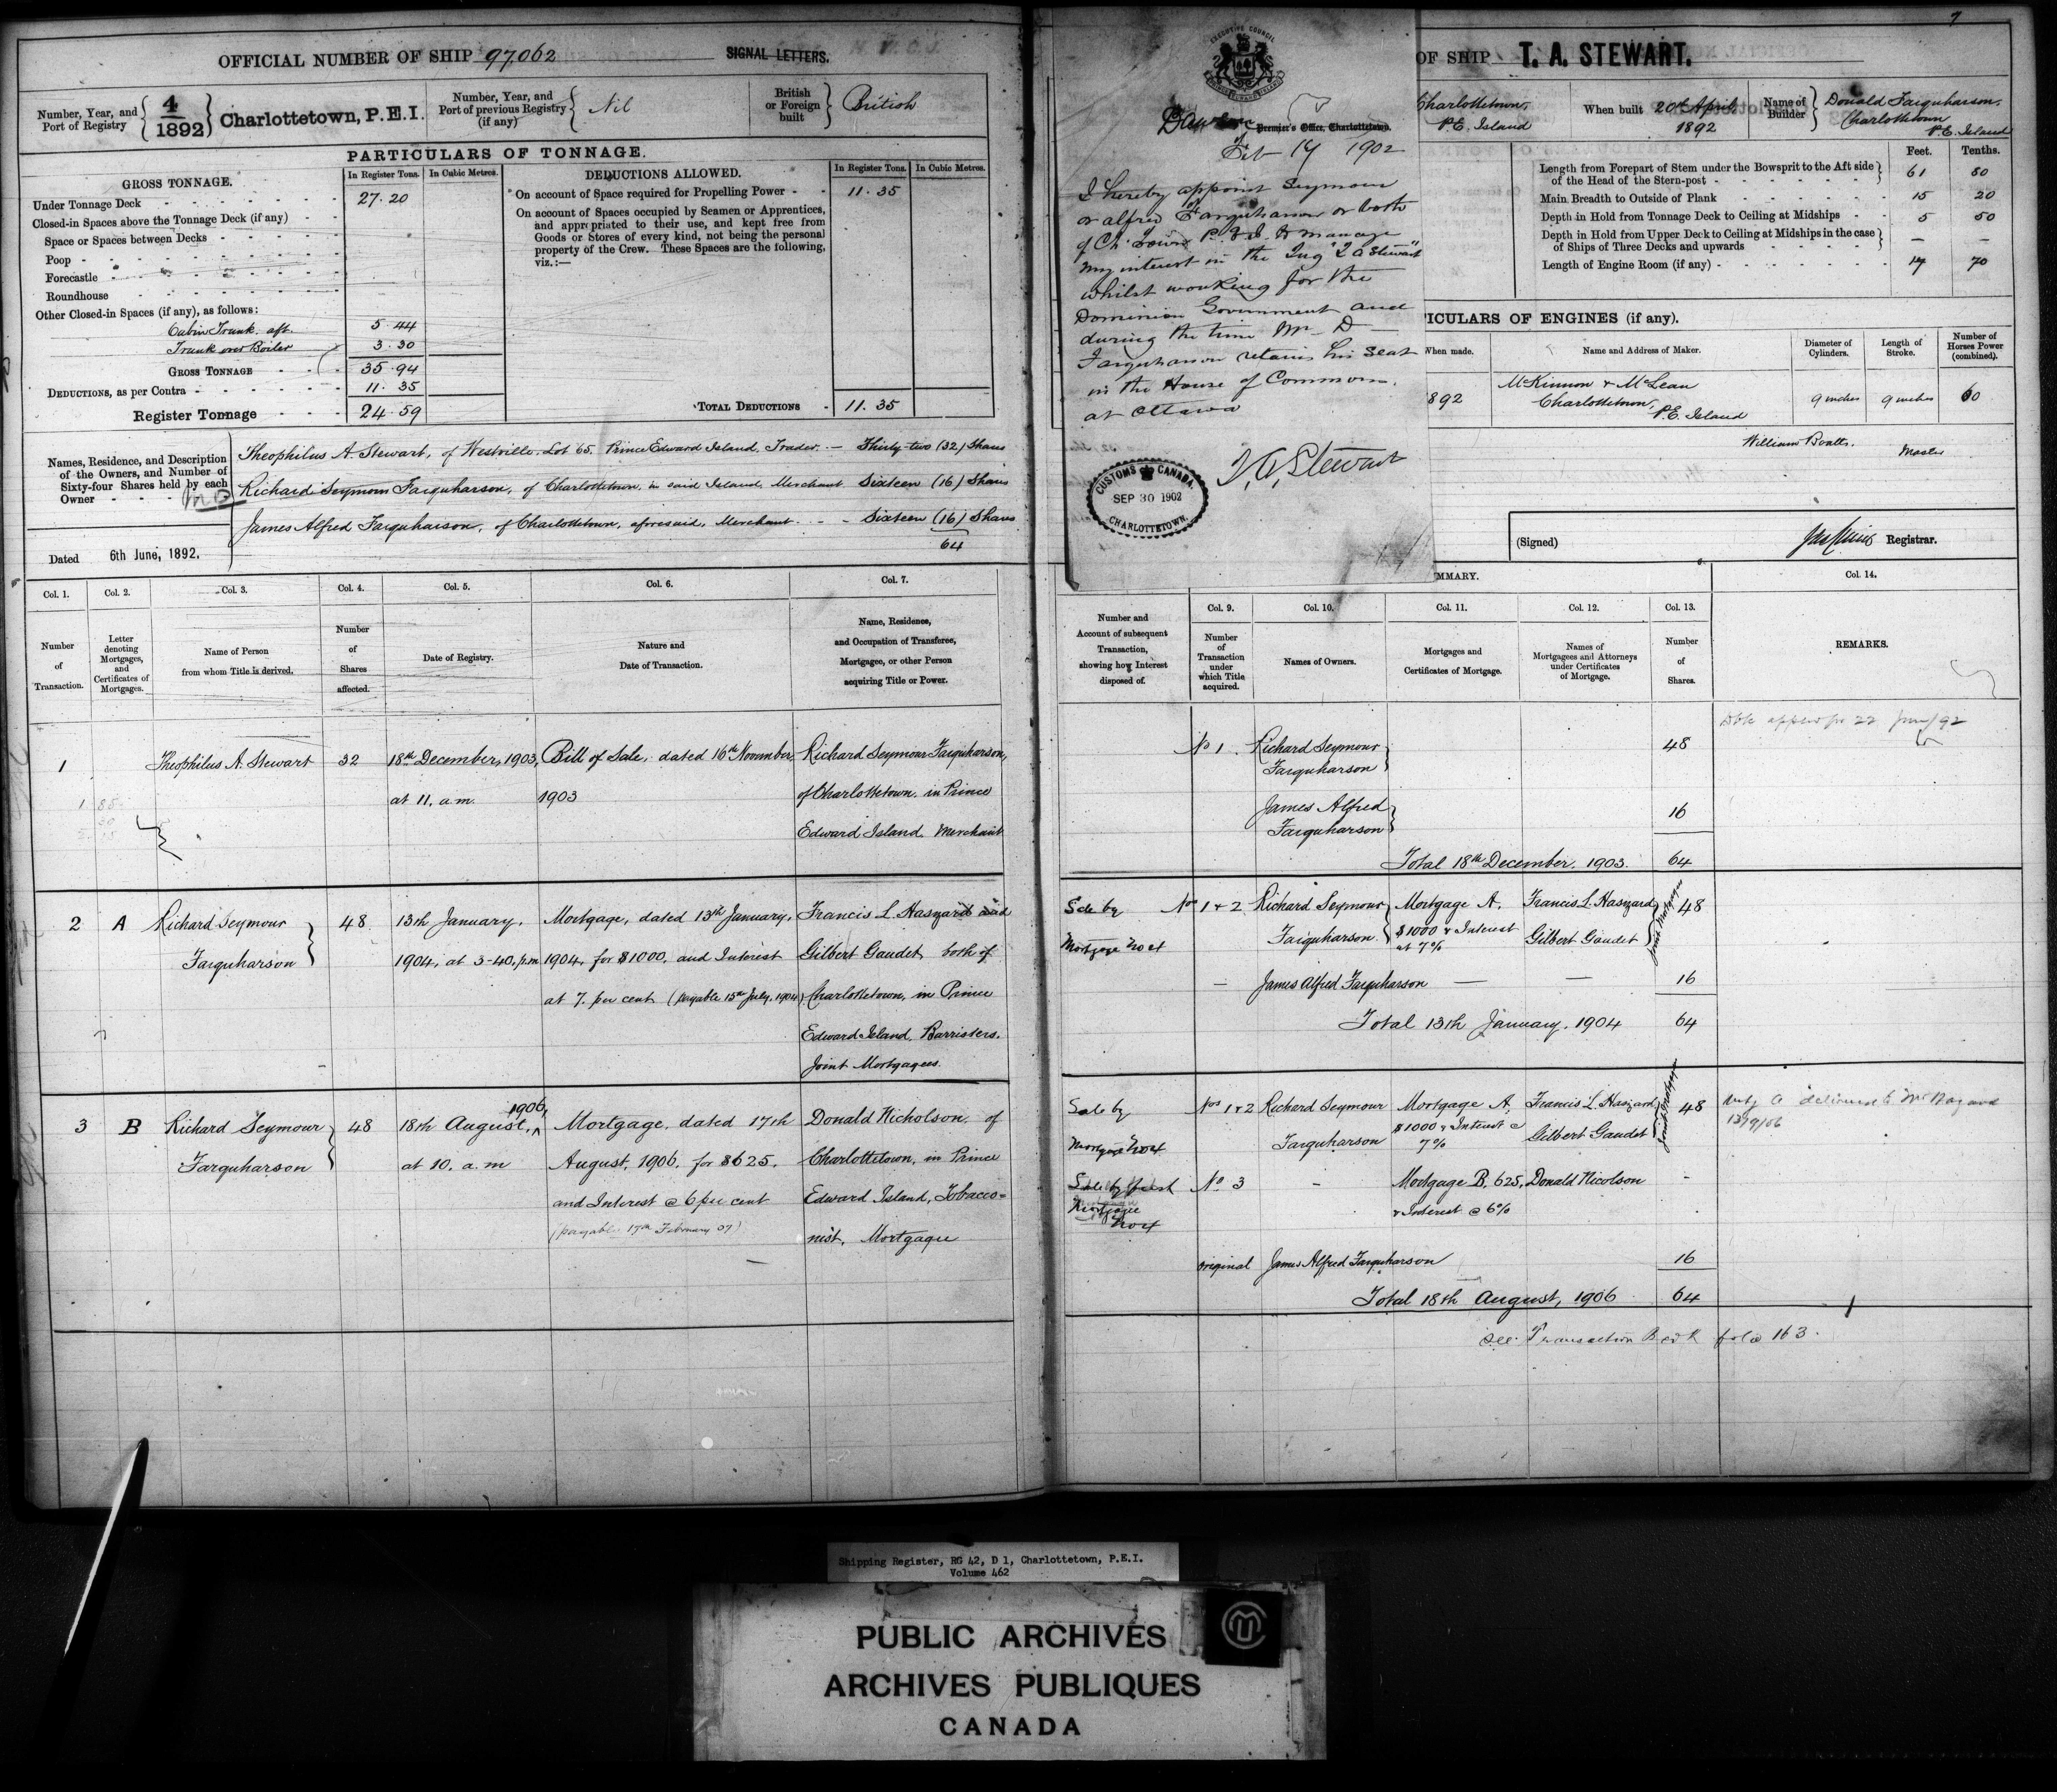 OFFICIAL NUMBER OF SHIP 97,062 SIGNAL LETTERS.
Number, Year, and Port of Registry 4/1892 Charlottetown, P.E.I.
Number, Year, and Port of previous Registry (if any) Nil
British or Foreign built British
PARTICULARS OF TONNAGE.
GROSS TONNAGE. In Register Tons. In Cubic Metres.
Under Tonnage Deck 27.20
Closed-in Spaces above the Tonnage Deck (if any)
Space or Spaces between Decks
Poop
Forecastle
Roundhouse
Other Closed-in Spaces (if any), as follows:
Cabin Trunk. aft. 5.44
Trunk over Boiler 3.30
GROSS TONNAGE 35.94
DEDUCTIONS, as per Contra 11.35
Register Tonnage 24.59
DEDUCTIONS ALLOWED. In Register Tons. In Cubic Metres.
On account of Space required for Propelling Power 11.35
On account of Spaces occupied by Seamen or Apprentices,
and appropriated to their use, and kept free from
Goods or Stores of every kind, not being the personal
property of the Crew. These Spaces are the following,
viz.:—
TOTAL DEDUCTIONS 11.35
Names, Residence, and Description
of the Owners, and Number of
Sixty-four Shares held by each
Owner
Theophilus A. Stewart, of Westville, Lot 65. Prince Edward Island, Trader. — Thirty-two (32) Shares
Richard Seymour Farquharson, of Charlottetown, in said Island, Merchant. Sixteen (16) Shares
James Alfred Farquharson, of Charlottetown, aforesaid, Merchant. - - Sixteen (16) Shares
64
Dated 6th June, 1892.
Col. 1. Col. 2. Col. 3. Col. 4. Col. 5. Col. 6. Col. 7.
Number of Transaction.
Letter denoting Mortgages, and Certificates of Mortgages.
Name of Person from whom Title is derived.
Number of Shares affected.
Date of Registry.
Nature and Date of Transaction.
Name, Residence, and Occupation of Transferee, Mortgagee, or other Person acquiring Title or Power.
1 Theophilus A. Stewart 32 18th December, 1903, Bill of Sale, dated 16th November, Richard Seymour Farquharson,
at 11, a.m. 1903 of Charlottetown, in Prince
Edward Island Merchant
2 A Richard Seymour 48 13th January, Mortgage, dated 13th January, Francis L Haszard and
Farquharson 1904, at 3-40, p.m 1904, for $1000, and Interest Gilbert Gaudet, both of
at 7. per cent (payable 15th July, 1904) Charlottetown, in Prince
Edward Island, Barristers.
Joint Mortgagees.
3 B Richard Seymour 48 18th August, 1906, Mortgage, dated 17th Donald Nicholson of
Farquharson at 10. a.m August, 1906, for $625, Charlottetown, in Prince
and Interest @ 6 per cent Edward Island, Tobacco=
(payable 17th February 07) nist, Mortgagee
7
Premier's Office, Charlottetown.
EXECUTIVE COUNCIL
Feb 14 1902
I hereby appoint Seymour
or alfred Farquharson or both
of Ch Town P.E.I. to manage
my interest in the Tug "T A Stewart"
whilst working for the
Dominion Government and
during the time Mr D
Farquharson retains his seat
in the House of Commons
at Ottawa
T. A. Stewart
CUSTOMS CANADA.
SEP 30 1902
CHARLOTTETOWN.
OF SHIP T. A. STEWART.
Charlottetown, P.E. Island
When built 20th April 1892
Name of Builder Donald Farquharson, Charlottetown P.E. Island
Feet. Tenths.
Length from Forepart of Stem under the Bowsprit to the Aft side
of the Head of the Stern-post 61 80
Main Breadth to Outside of Plank 15 20
Depth in Hold from Tonnage Deck to Ceiling at Midships 5 50
Depth in Hold from Upper Deck to Ceiling at Midships in the case
of Ships of Three Decks and upwards — —
Length of Engine Room (if any) 17 70
ICULARS OF ENGINES (if any).
When made. Name and Address of Maker. Diameter of Cylinders. Length of Stroke. Number of Horses Power (combined).
892 McKinnon & McLean Charlottetown, P.E. Island 9 inches 9 inches 60
Master
(Signed) Registrar.
MMARY.
Col. 9. Col. 10. Col. 11. Col. 12. Col. 13. Col. 14.
Number and Account of subsequent Transaction, showing how Interest disposed of.
Number of Transaction under which Title acquired.
Names of Owners.
Mortgages and Certificates of Mortgage.
Names of Mortgagees and Attorneys under Certificates of Mortgage.
Number of Shares.
REMARKS.
No 1. Richard Seymour Farquharson 48
James Alfred Farquharson 16
Total 18th December. 1903. 64
Sale by Mortgage Nos 1 & 2 Richard Seymour Farquharson. Mortgage A, $1000 & Interest at 7% Francis L. Haszard Gilbert Gaudet Joint Mortgagees 48
— James Alfred Farquharson — — 16
Total 13th January, 1904 64
Sale by Mortgagee Nos 1 & 2 Richard Seymour Farquharson Mortgage A, $1000 & Interest @ 7% Francis L. Haszard Gilbert Gaudet Joint Mortgagees 48
Sale by first Mortgagee No. 3 - Mortgage B. 625, & Interest @ 6% Donald Nicolson -
original James Alfred Farquharson 16
Total 18th August, 1906 64
See Transaction Book folio 163.
Shipping Register, RG 42, D 1, Charlottetown, P.E.I.
Volume 462
PUBLIC ARCHIVES
ARCHIVES PUBLIQUES
CANADA